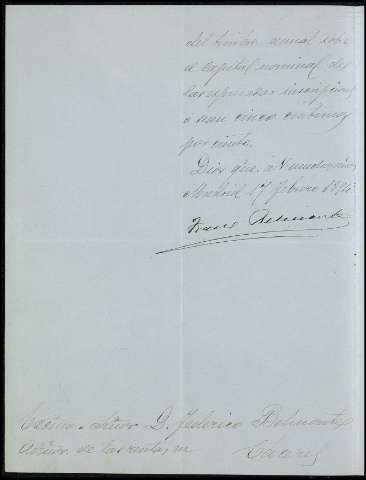 del timbre anual sobre
el capital nominal de
las expresadas inscripcion
o sean cinco céntimos
por ciento.
Dios gue. a V. muchos años
Madrid 17 febrero
Belmonte
Excmo. Señor D. Federico Belmonte
de las rentas en
Cáceres